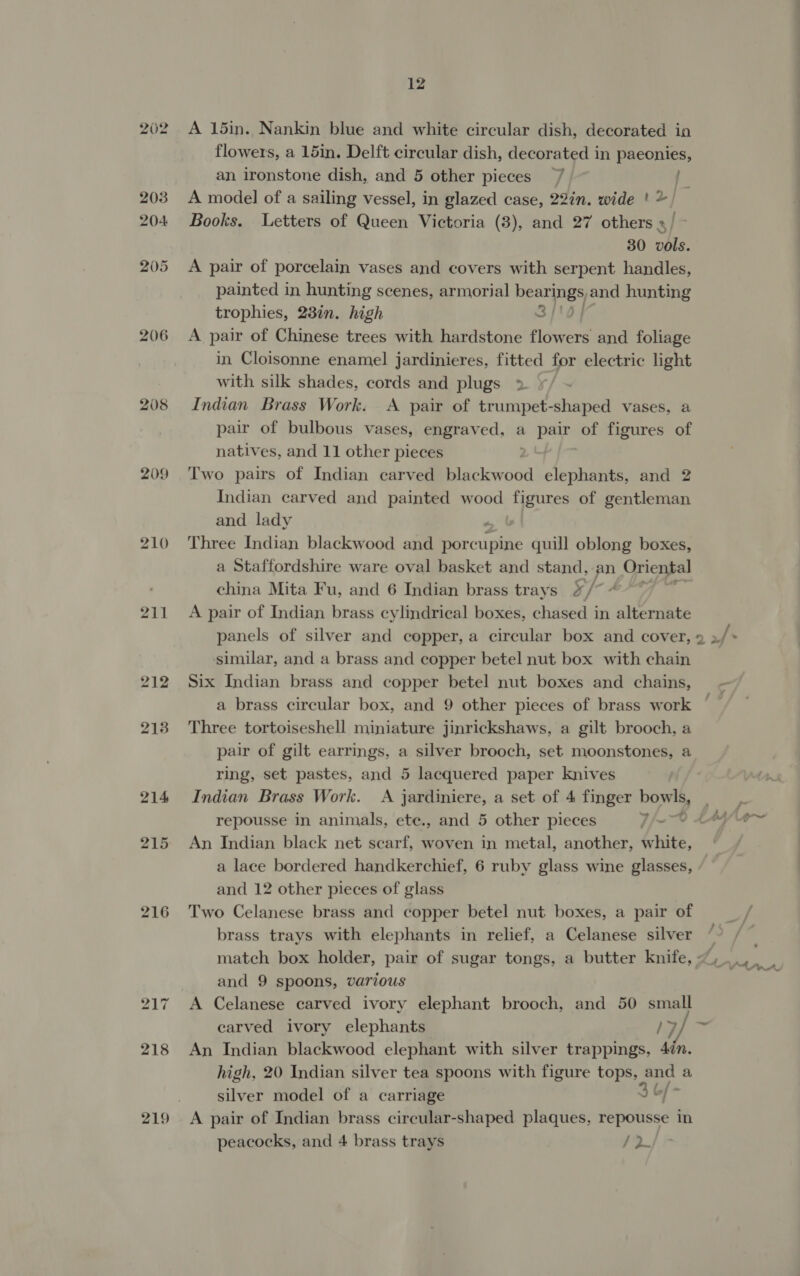 12
202 A 15in. Nankin blue and white circular dish, decorated in
flowers, a 15in. Delft circular dish, decorated in paeonies,
an ironstone dish, and 5 other pieces 7/-
203 A model of a sailing vessel, in glazed case, 22in. wide 12/-
204 Books. Letters of Queen Victoria (3), and 27 others
30 vols.
205 A pair of porcelain vases and covers with serpent handles,
painted in hunting scenes, armorial bearings, and hunting
trophies, 23in. high
206 A pair of Chinese trees with hardstone flowers and foliage
in Cloisonne enamel jardinieres, fitted for electric light
with silk shades, cords and plugs
208 Indian Brass Work. A pair of trumpet-shaped vases, a
pair of bulbous vases, engraved, a pair of figures of
natives, and 11 other pieces
209 Two pairs of Indian carved blackwood elephants, and 2
Indian carved and painted wood figures of gentleman
and lady
210 Three Indian blackwood and porcupine quill oblong boxes,
a Staffordshire ware oval basket and stand, an Oriental
china Mita Fu, and 6 Indian brass trays
211 A pair of Indian brass cylindrical boxes, chased in alternate
panels of silver and copper, a circular box and cover,
similar, and a brass and copper betel nut box with chain
212 Six Indian brass and copper betel nut boxes and chains,
a brass circular box, and 9 other pieces of brass work
213 Three tortoiseshell miniature jinrickshaws, a gilt brooch, a
pair of gilt earrings, a silver brooch, set moonstones, a
ring, set pastes, and 5 lacquered paper knives
214 Indian Brass Work. A jardiniere, a set of 4 finger bowls,
repousse in animals, etc., and 5 other pieces
215 An Indian black net scarf, woven in metal, another, white,
a lace bordered handkerchief, 6 ruby glass wine glasses,
and 12 other pieces of glass
216 Two Celanese brass and copper betel nut boxes, a pair of
brass trays with elephants in relief, a Celanese silver
match box holder, pair of sugar tongs, a butter knife,
and 9 spoons, various
217 A Celanese carved ivory elephant brooch, and 50 small
carved ivory elephants 17/-
218 An Indian blackwood elephant with silver trappings, 4in.
high, 20 Indian silver tea spoons with figure tops, and a
silver model of a carriage 36/-
219 A pair of Indian brass circular-shaped plaques, repousse in
peacocks, and 4 brass trays 12/-